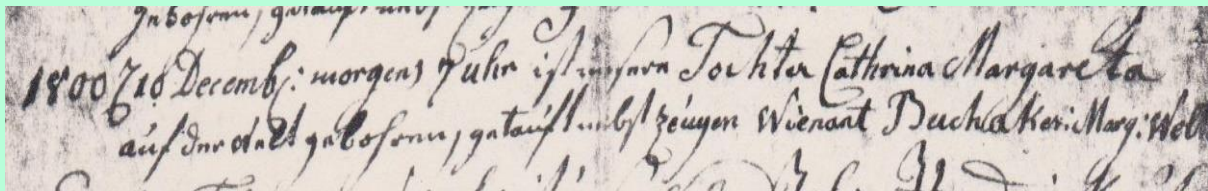 gebohren, getauft nebst
1800 d 10 Decembr: morgens 7 uhr ist unsere Tochter Cathrina Margareta
auf der welt gebohren, getauft nebst zeugen Wienant Buchaker: Marg: